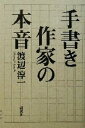 手書き
作家の
本音
渡辺淳一